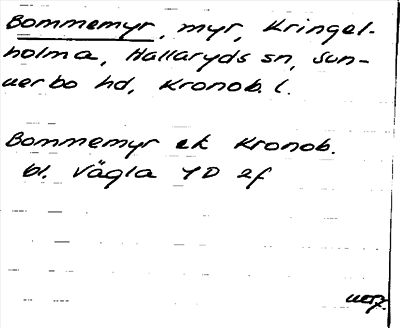 Bommemyr, myr, Kringel-
holma, Hallaryds sn, Sun-
nerbo hd, Kronob. l.
Bommemyr ek Kronob.
bl. Vägla YD 2f